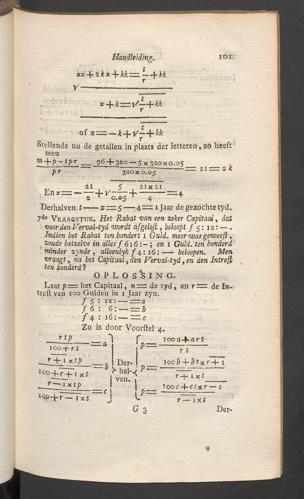 Handleiding. 101
xx + 2kx + kk = t/r + kk
√
x + k = √ t/r + kk
of x = — k + √ t/r + kk
Stellende nu de getallen in plaats der letteren, zo heeft
men
m + p — tpr / pr = 96 + 320 — 5 x 320 x 0.05 / 320 x 0.05 = 21 = 2k
En x = — 21/2 + √ 5/0.05 + 21 x 21/4 = 4
Derhalven t — x = 5 — 4 = 1 Jaar de gezochte tyd.
7de VRAAGSTUK. Het Rabat van een zeker Capitaal, dat
voor den Verval-tyd wordt afgelost, beloopt f 5 : 12 : —
Indien het Rabat ten hondert 1 Guld. meer was geweest,
zoude hetzelve in alles f 6 : 6 : — ; en 1 Guld. ten hondert
minder zynde, alleenlyk f 4 : 16 : — beloopen. Men
vraagt, na het Capitaal, den Verval-tyd, en den Intrest
ten hondert?
OPLOSSING.
Laat p = het Capitaal, n = de tyd, en r = de In-
trest van 100 Gulden in 1 Jaar zyn.
f 5 : 12 : — = a
f 6 : 6 : — = b
f 4 : 16 : — = c
Zo is door Voorstel 4.
rtp / 100 + rt = a
r + 1 x tp / 100 + r + 1 x t = b
r — 1 x tp / 100 + r — 1 x t = c
Der-
hal-
ven.
p = 100a + art / rt
p = 100b + bt x r + 1 / r + 1 x t
p = 100c + ct x r — 1 / r — 1 x t
G 3 Der-